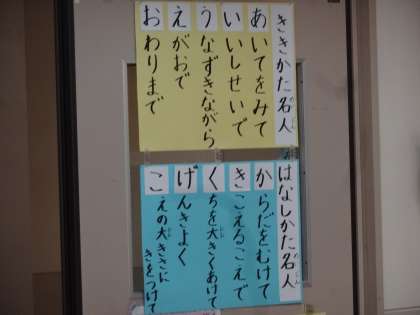 ききかた名人
あいてをみて
いいしせいで
うなずきながら
えがおで
おわりまで
はなしかた名人
からだをむけて
きこえるこえで
くちを大きくあけて
げんきよく
こえの大きさに
きをつけて